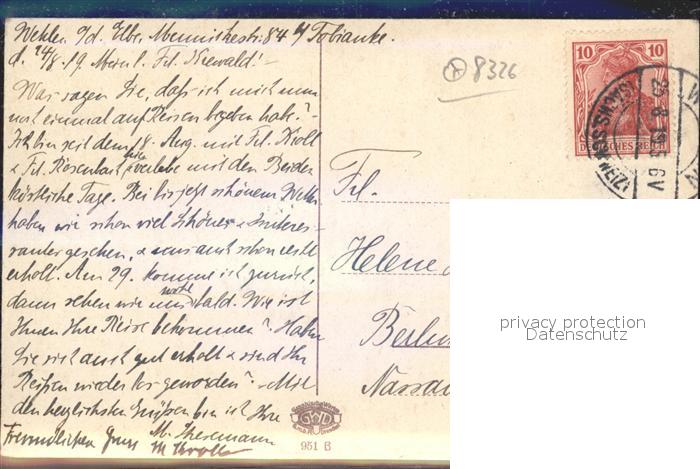 Wehlen a/d. Elbe, Mennickestr. 84 b/ Tobianke.
d. 24/8. 19. Mein l. Frl. Niewald! –
Was sagen Sie, daß ich mich nun
noch einmal auf Reisen begeben habe? –
Ich bin seit dem 18. Aug. mit Frl. Kroll
& Frl. Rosenbach hier verlebe mit den Beiden
köstliche Tage. Bei bis jetzt schönem Wetter
haben wir schon viel Schönes & Interes-
santes gesehen, & uns auch schon recht
erholt. Am 29. komme ich zurück,
dann sehen wir uns wohl bald. Wie ist
Ihnen Ihre Reise bekommen? Haben
Sie sich auch gut erholt & sind Ihr
Reißen wieder los geworden? – Mit
den herzlichsten Grüßen bin ich Ihre
M.
Freundlichen Gruss M. Kroll
8326
10 10
DEUTSCHES REICH
(SÄCHS. SCHWEIZ)
Frl.
Helene
Berlin
Nassau
GWD
951 B
privacy protection
Datenschutz